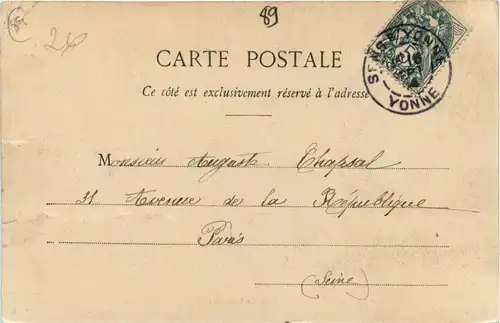 89
89
26
CARTE POSTALE
Ce côté est exclusivement réservé à l'adresse
SENS S/YONNE
YONNE
Monsieur Auguste Chapsal
31 Avenue de la République
Paris
(Seine)